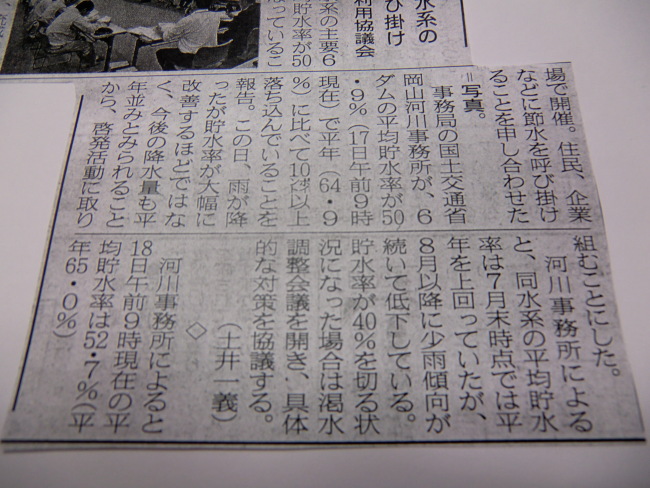 水系の
び掛け
利用協議会
系の主要6
貯水率が50
っているこ
場で開催。住民、企業
などに節水を呼び掛け
ることを申し合わせた
＝写真。
事務局の国土交通省
岡山河川事務所が、6
ダムの平均貯水率が50
・9％（17日午前9時
現在）で平年（64・9
％）に比べて10㌽以上
落ち込んでいることを
報告。この日、雨が降
ったが貯水率が大幅に
改善するほどではな
く、今後の降水量も平
年並みとみられること
から、啓発活動に取り
組むことにした。
河川事務所による
と、同水系の平均貯水
率は7月末時点では平
年を上回っていたが、
8月以降に少雨傾向が
続いて低下している。
貯水率が40％を切る状
況になった場合は渇水
調整会議を開き、具体
的な対策を協議する。
（土井一義）
◇
河川事務所によると
18日午前9時現在の平
均貯水率は52・7％（平
年65・0％）